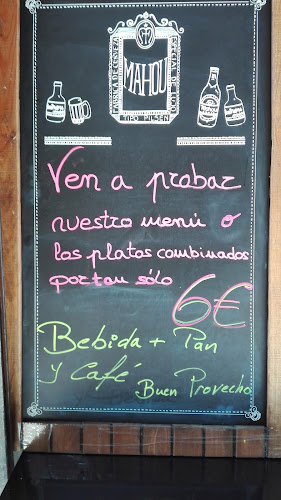 FABRICA DE CERVEZA
MAHOU
TIPO PILSEN
Ven a probar
nuestro menú o
los platos combinados
por tan sólo
6€
Bebida + Pan
y Café
Buen Provecho